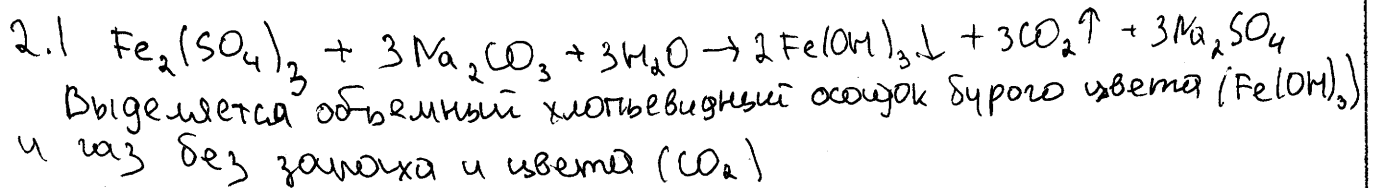 2.1 Fe₂(SO₄)₃ + 3Na₂CO₃ + 3H₂O → 2Fe(OH)₃↓ + 3CO₂↑ + 3Na₂SO₄
Выделяется объемный хлопьевидный осадок бурого цвета (Fe(OH)₃)
и газ без запаха и цвета (CO₂)